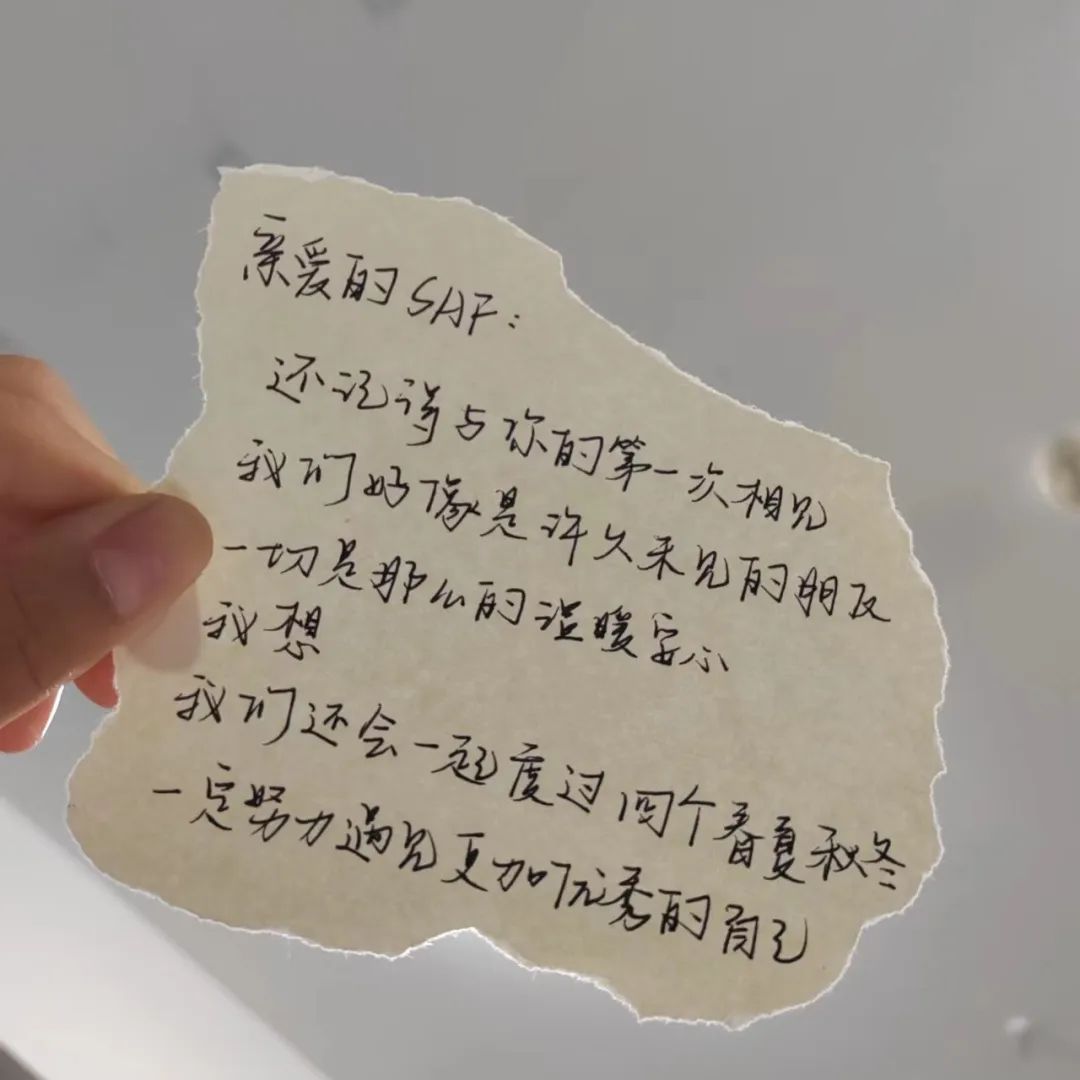 亲爱的SAF:
还记得与你的第一次相见
我们好像是许久未见的朋友
一切是那么的温暖安心
我想
我们还会一起度过四个春夏秋冬
一定努力遇见更加优秀的自己